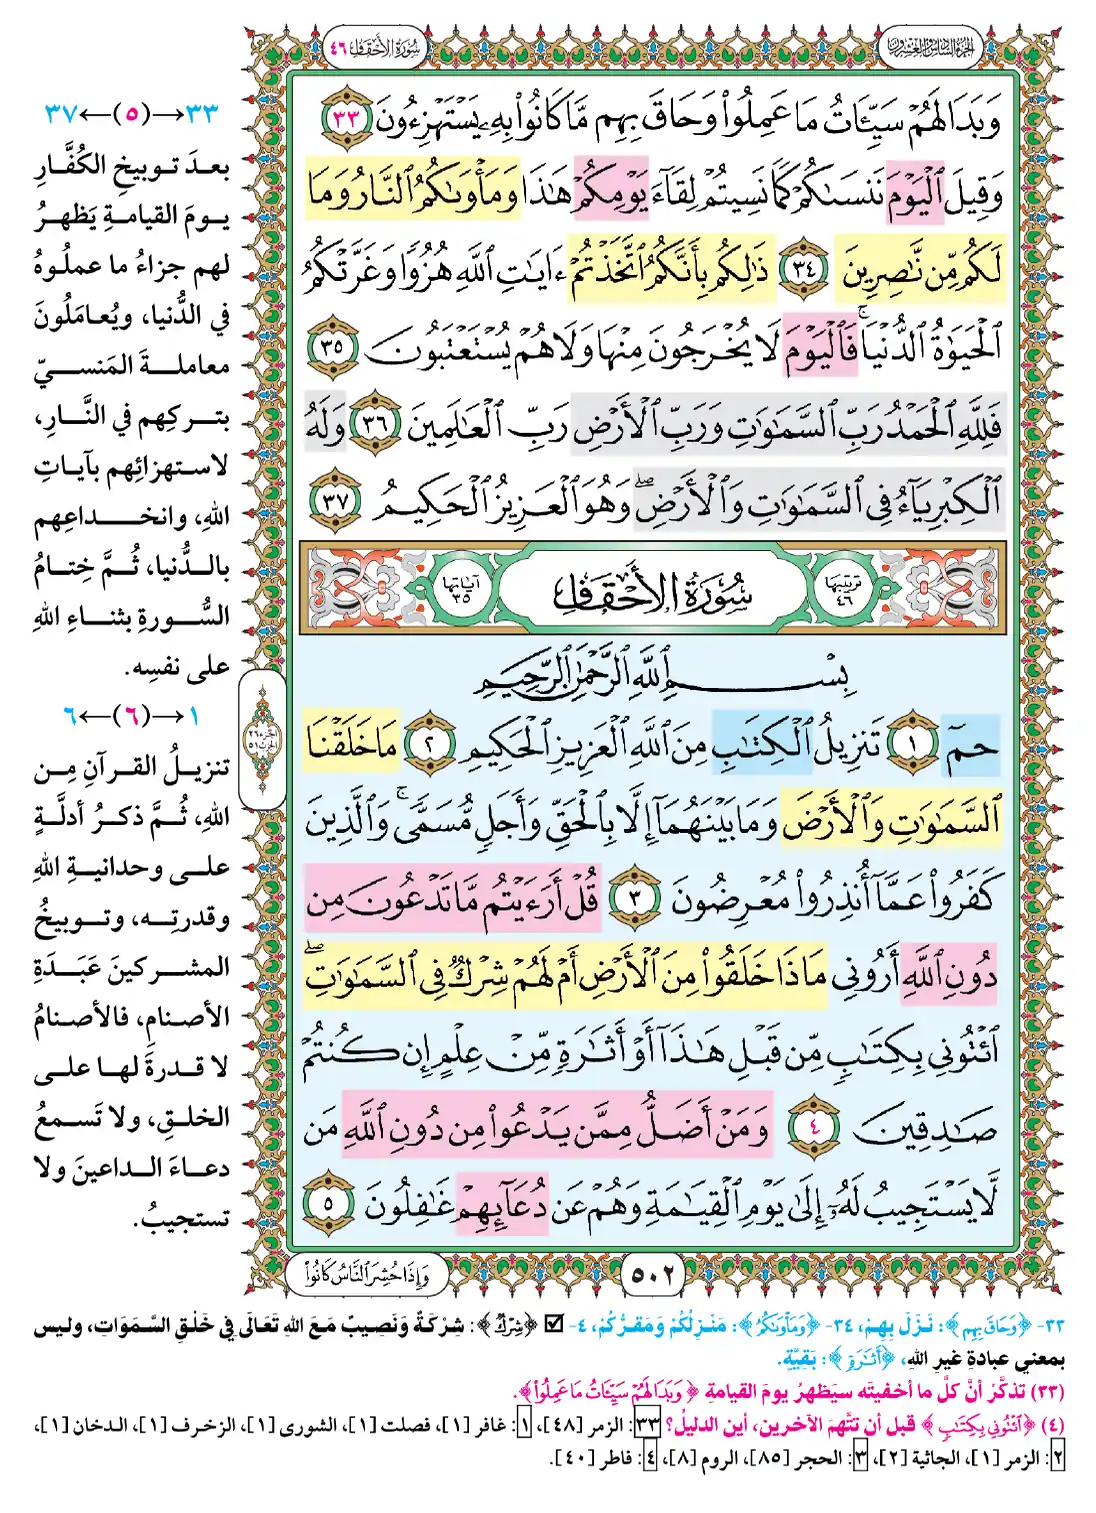 الجزء السادس والعشرون
سورة الأحقاف ٤٦
وَبَدَا لَهُمْ سَيِّـَٔاتُ مَا عَمِلُوا۟ وَحَاقَ بِهِم مَّا كَانُوا۟ بِهِۦ يَسْتَهْزِءُونَ ٣٣
وَقِيلَ ٱلْيَوْمَ نَنسَىٰكُمْ كَمَا نَسِيتُمْ لِقَآءَ يَوْمِكُمْ هَٰذَا وَمَأْوَىٰكُمُ ٱلنَّارُ وَمَا
لَكُم مِّن نَّٰصِرِينَ ٣٤ ذَٰلِكُم بِأَنَّكُمُ ٱتَّخَذْتُمْ ءَايَٰتِ ٱللَّهِ هُزُوًا وَغَرَّتْكُمُ
ٱلْحَيَوٰةُ ٱلدُّنْيَا ۚ فَٱلْيَوْمَ لَا يُخْرَجُونَ مِنْهَا وَلَا هُمْ يُسْتَعْتَبُونَ ٣٥
فَلِلَّهِ ٱلْحَمْدُ رَبِّ ٱلسَّمَٰوَٰتِ وَرَبِّ ٱلْأَرْضِ رَبِّ ٱلْعَٰلَمِينَ ٣٦ وَلَهُ
ٱلْكِبْرِيَآءُ فِى ٱلسَّمَٰوَٰتِ وَٱلْأَرْضِ ۖ وَهُوَ ٱلْعَزِيزُ ٱلْحَكِيمُ ٣٧
ترتيبها ٤٦ سُورَةُ الأَحْقَافِ آياتها ٣٥
بِسْمِ ٱللَّهِ ٱلرَّحْمَٰنِ ٱلرَّحِيمِ
حمٓ ١ تَنزِيلُ ٱلْكِتَٰبِ مِنَ ٱللَّهِ ٱلْعَزِيزِ ٱلْحَكِيمِ ٢ مَا خَلَقْنَا
ٱلسَّمَٰوَٰتِ وَٱلْأَرْضَ وَمَا بَيْنَهُمَآ إِلَّا بِٱلْحَقِّ وَأَجَلٍ مُّسَمًّى ۚ وَٱلَّذِينَ
كَفَرُوا۟ عَمَّآ أُنذِرُوا۟ مُعْرِضُونَ ٣ قُلْ أَرَءَيْتُم مَّا تَدْعُونَ مِن
دُونِ ٱللَّهِ أَرُونِى مَاذَا خَلَقُوا۟ مِنَ ٱلْأَرْضِ أَمْ لَهُمْ شِرْكٌ فِى ٱلسَّمَٰوَٰتِ ۖ
ٱئْتُونِى بِكِتَٰبٍ مِّن قَبْلِ هَٰذَآ أَوْ أَثَٰرَةٍ مِّنْ عِلْمٍ إِن كُنتُمْ
صَٰدِقِينَ ٤ وَمَنْ أَضَلُّ مِمَّن يَدْعُوا۟ مِن دُونِ ٱللَّهِ مَن
لَّا يَسْتَجِيبُ لَهُۥٓ إِلَىٰ يَوْمِ ٱلْقِيَٰمَةِ وَهُمْ عَن دُعَآئِهِمْ غَٰفِلُونَ ٥
٥٠٢
وَإِذَا حُشِرَ ٱلنَّاسُ كَانُوا۟
٣٣→(٥)←٣٧
بعدَ توبيخِ الكُفَّارِ
يومَ القيامةِ يَظهرُ
لهم جزاءُ ما عملُوهُ
في الدُّنيا، ويُعامَلُونَ
معاملةَ المَنسيّ
بتركِهم في النَّارِ،
لاستهزائِهم بآياتِ
اللهِ، وانخداعِهم
بالدُّنيا، ثُمَّ خِتامُ
السُّورةِ بثناءِ اللهِ
على نفسِه.
١→(٦)←٦
تنزيلُ القرآنِ مِن
اللهِ، ثُمَّ ذكرُ أدلَّةٍ
على وحدانيةِ اللهِ
وقدرتِه، وتوبيخُ
المشركينَ عَبَدَةِ
الأصنامِ، فالأصنامُ
لا قدرةَ لها على
الخلقِ، ولا تَسمعُ
دعاءَ الداعينَ ولا
تستجيبُ.
الجزء ٢٦
الحزب ٥١
٣٣- ﴿وَحَاقَ بِهِم﴾: نَزَلَ بِهِمْ، ٣٤- ﴿وَمَأْوَىٰكُمُ﴾: مَنْزِلُكُمْ وَمَقَرُّكُمْ، ٤- ☑ ﴿شِرْكٌ﴾: شِرْكَةٌ وَنَصِيبٌ مَعَ اللهِ تَعَالَى فِي خَلْقِ السَّمَوَاتِ، وليس
بمعني عبادةِ غيرِ اللهِ، ﴿أَثَٰرَةٍ﴾: بَقِيَّةٍ.
(٣٣) تذكَّرْ أنَّ كلَّ ما أخفيتَه سيَظهرُ يومَ القيامةِ ﴿وَبَدَا لَهُمْ سَيِّـَٔاتُ مَا عَمِلُوا۟﴾.
(٤) ﴿ٱئْتُونِى بِكِتَٰبٍ﴾ قبل أن تتَّهِمَ الآخرين، أين الدليلُ؟ ٣٣: الزمر [٤٨]، ١: غافر [١]، فصلت [١]، الشورى [١]، الزخرف [١]، الدخان [١]،
٢: الزمر [١]، الجاثية [٢]، ٣: الحجر [٨٥]، الروم [٨]، ٤: فاطر [٤٠].